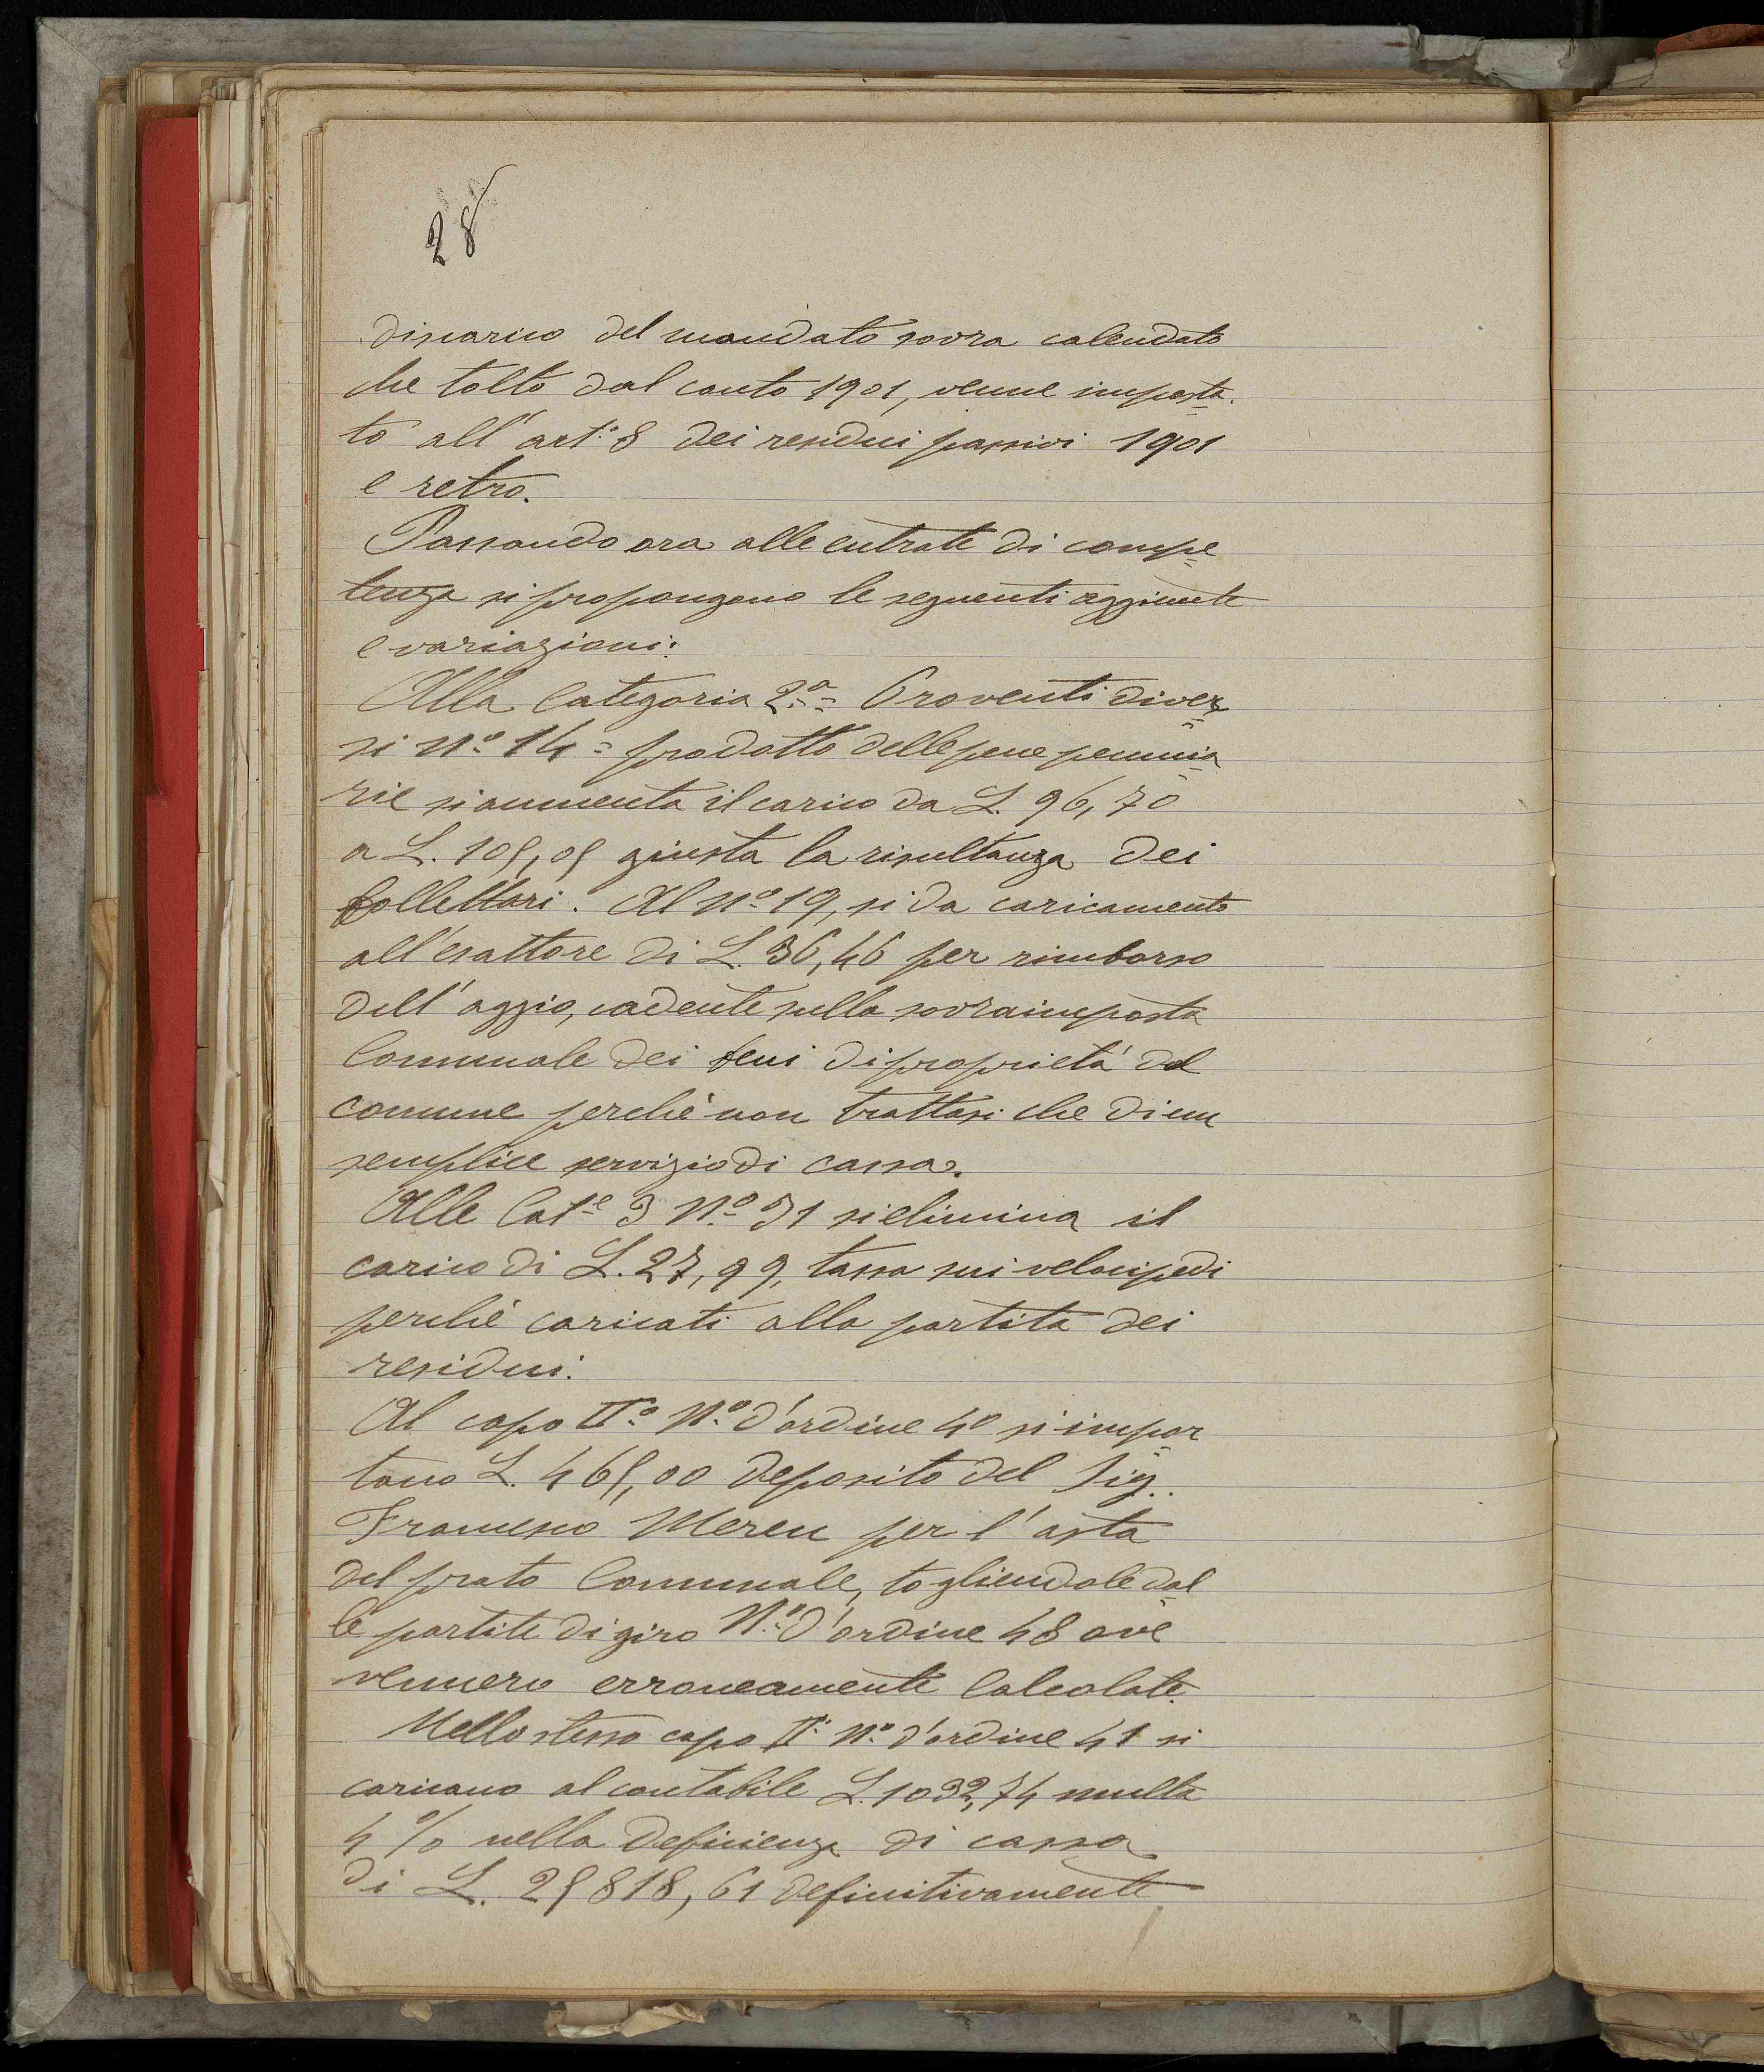 28
discarico del mandato sovra calendato
che tolto dal conto 1901, venne imposta-
to all'art.° 8 dei residui passivi 1901
e retro.
Passando ora alle entrate di compe
tenza si propongono le seguenti aggiunte
e variazioni:
Alla Categoria 2.ª = Proventi diver
si N.° 14 = prodotto delle pene pecunia
rie si aumenta il carico da L. 96,70
a L. 105,05 giusta la risultanza dei
bollettari. Al N.° 19, si da caricamento
all'esattore di L. 36,46 per rimborso
dell'aggio, cadente sulla sovraimposta
Comunale dei beni di proprietà del
comune perchè non trattasi che di un
semplice servizio di cassa.
Alle Cat.e 3 N.° 31 si elimina il
carico di L. 27,99, tassa sui velocipedi
perchè caricati alla partita dei
residui.
Al capo II.° N.° d'ordine 40 si impor
tano L. 465,00 deposito del Sig.
Francesco Mereu per l'asta
del prato Comunale, togliendole dal
le partite di giro N.° d'ordine 48 ove
vennero erroneamente Calcolate.
Nello stesso capo II° N.° d'ordine 41 si
caricano al contabile L. 1032,74 multa
4% nella deficienza di cassa
di L. 25818,61 definitivamente